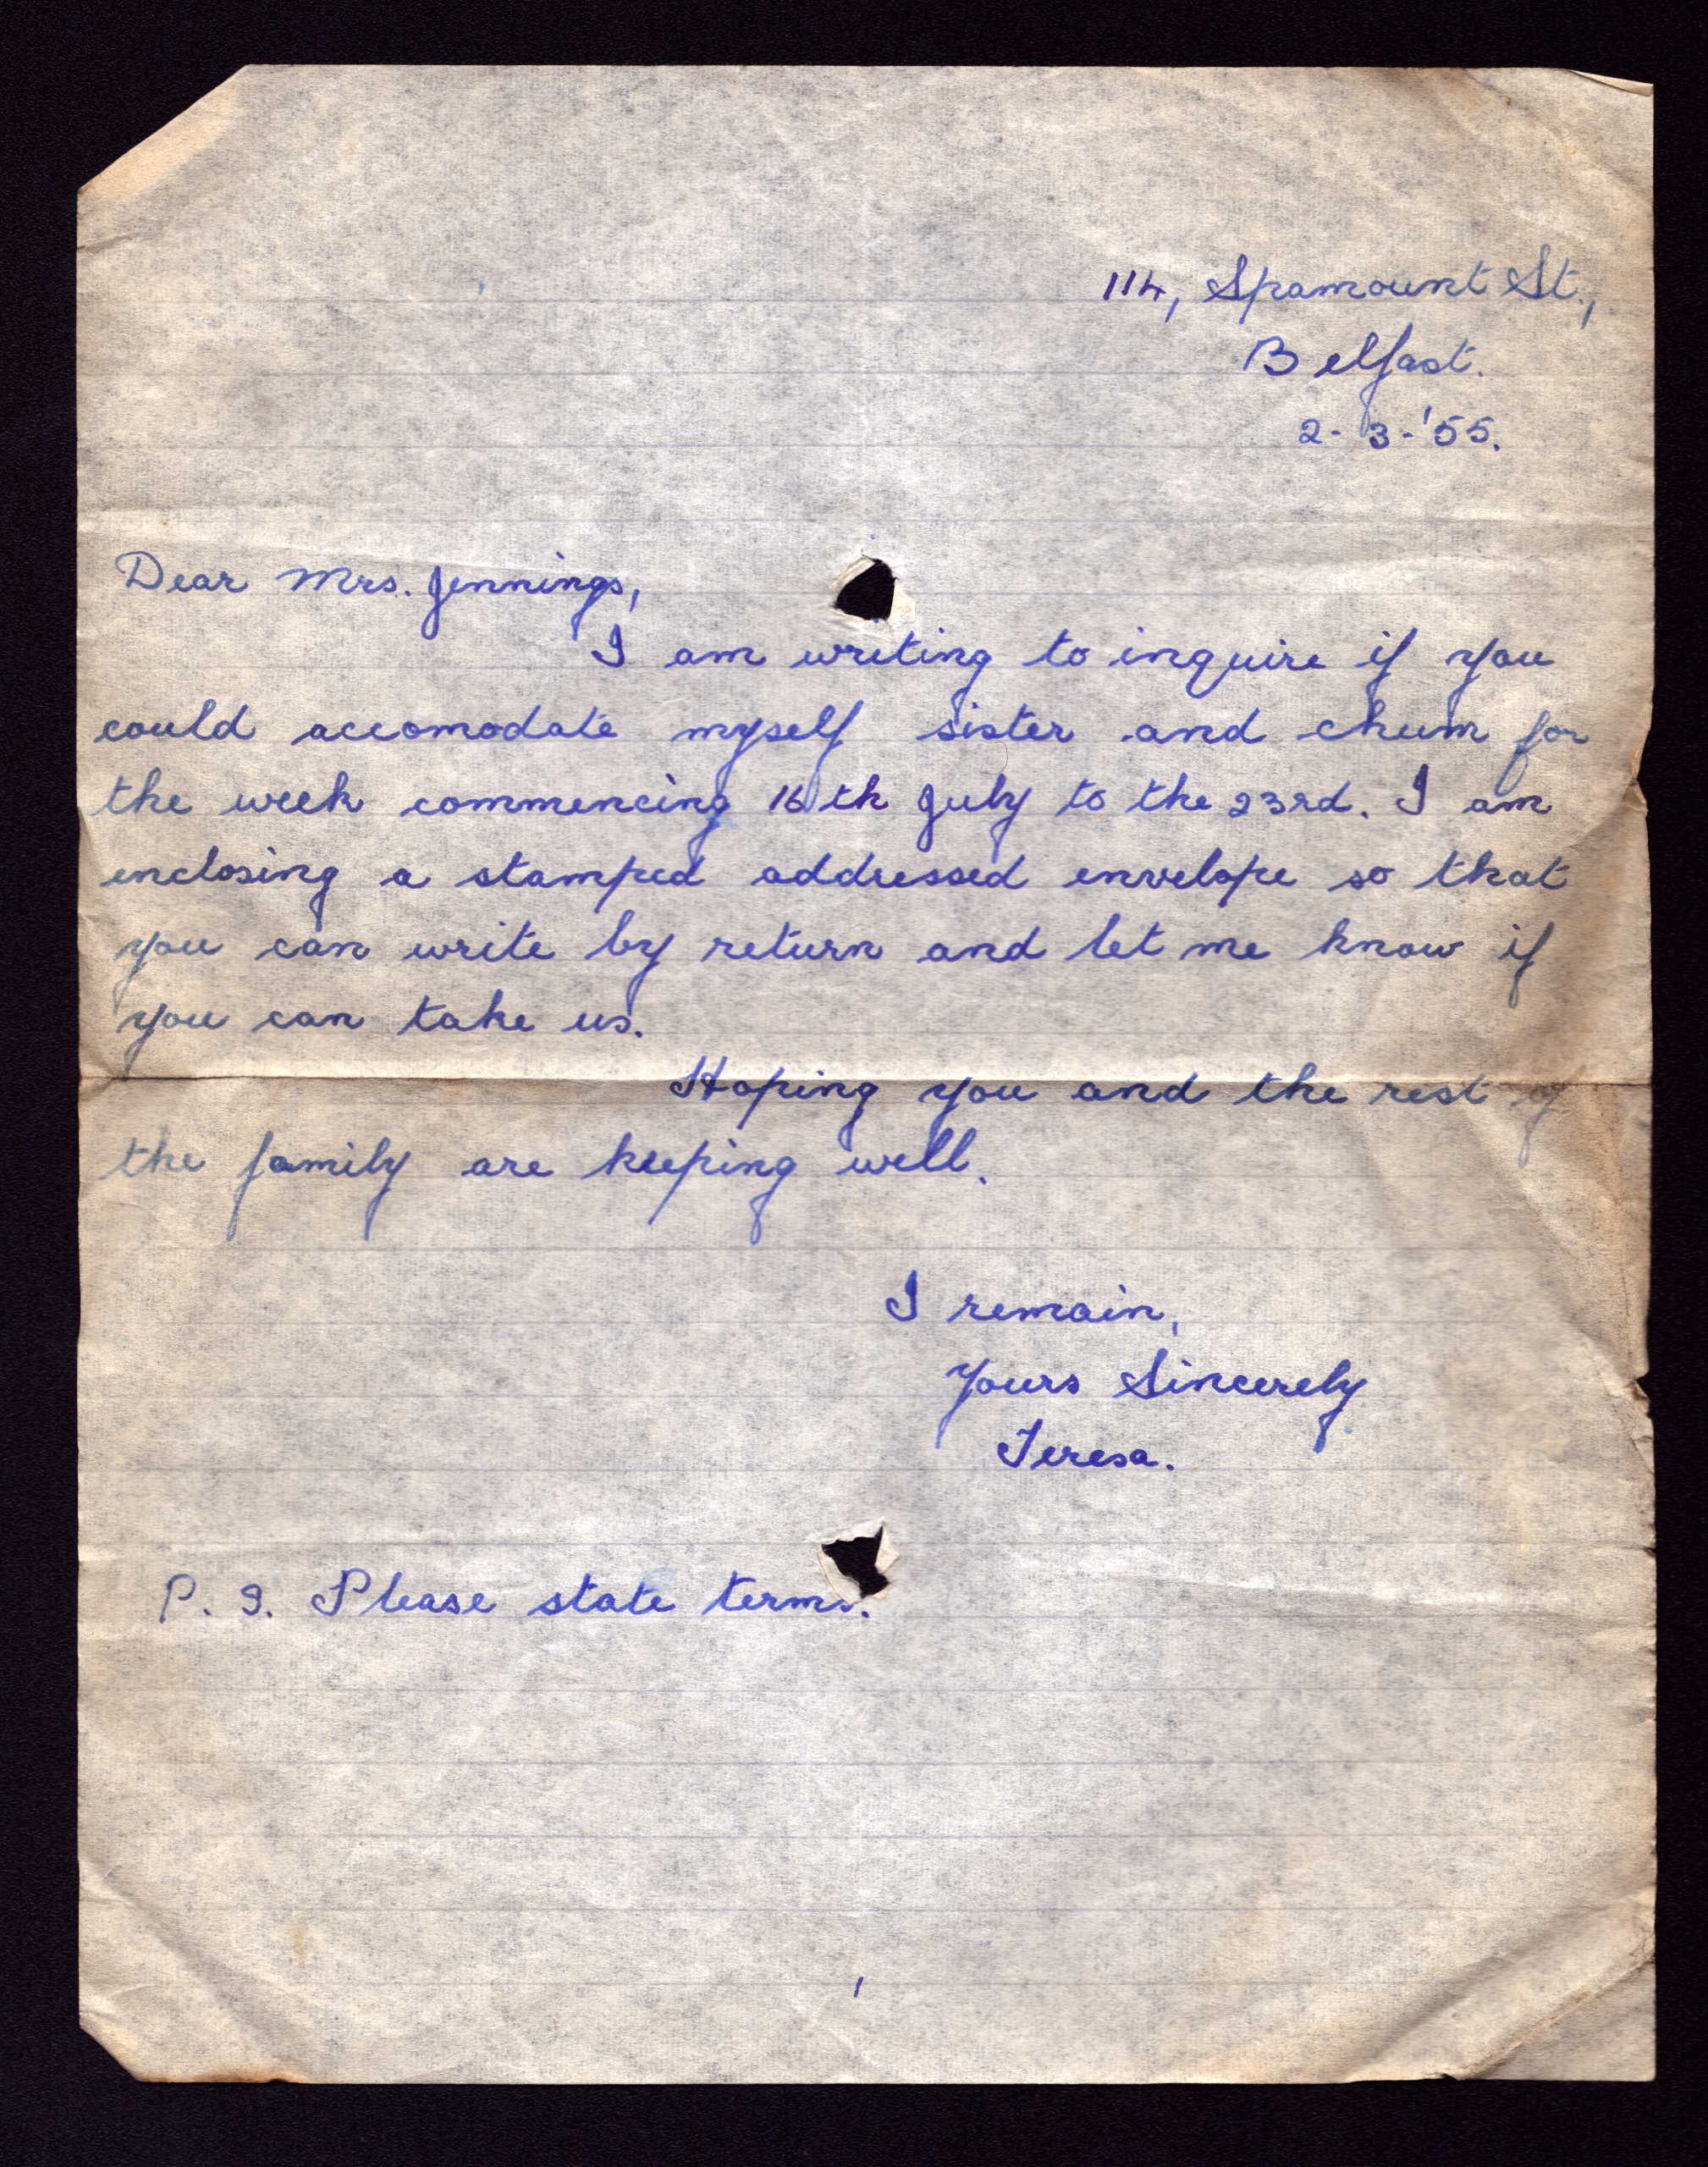 114, Spamount St.,
Belfast.
2-3-'55.
Dear Mrs. Jennings,
I am writing to inquire if you
could accomodate myself sister and chum for
the week commencing 16th July to the 23rd. I am
enclosing a stamped addressed envelope so that
you can write by return and let me know if
you can take us.
Hoping you and the rest of
the family are keeping well.
I remain,
Yours Sincerely
Teresa.
P. S. Please state terms.